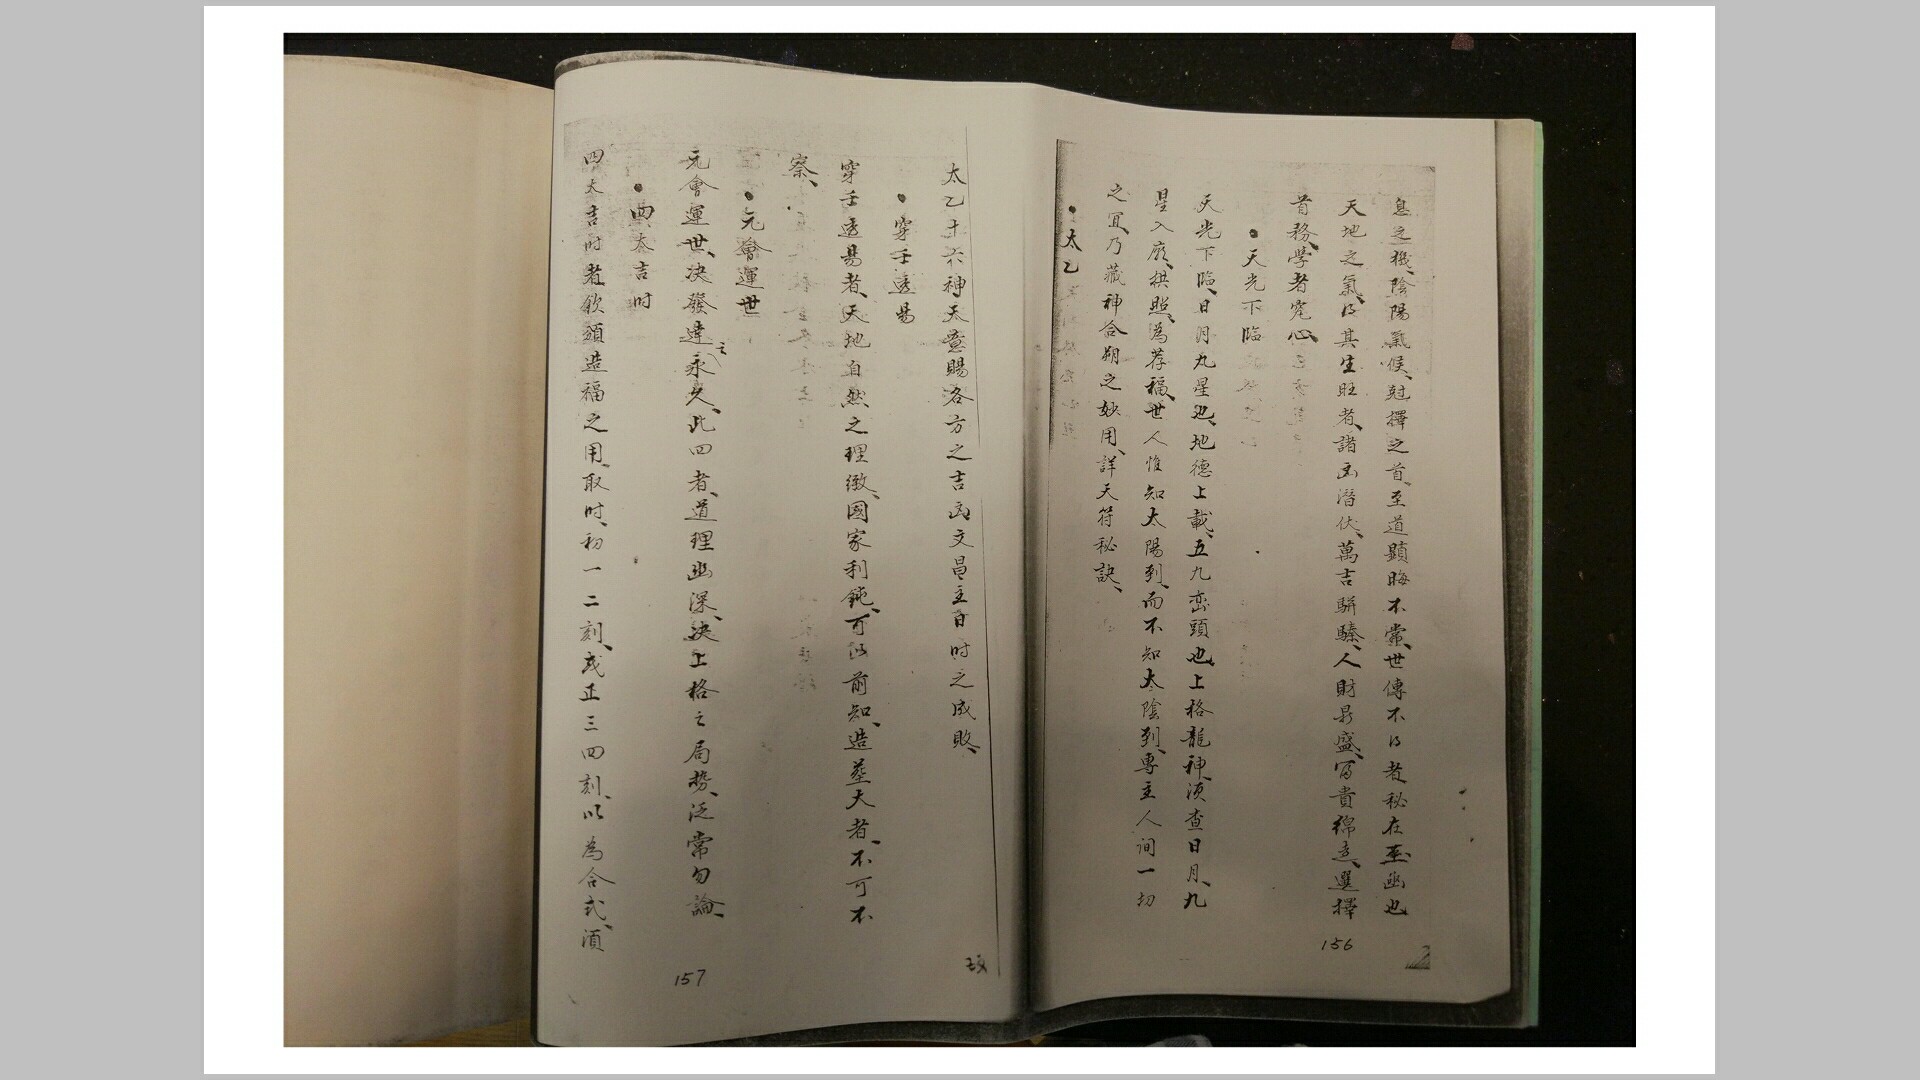 息之機、陰陽氣候、尅擇之首、至道顕晦不常、世傳不以者秘在至幽也
天地之氣、以其生旺者、諸凶潛伏、萬吉駢臻、人財昂盛、冨貴綿遠、選擇
首務、學者究心、
•天光下臨
天光下臨、日月九星也、地德上載、五九峦頭也、上格龍神、須查日月、九
星入廟、拱照、為荐福、世人惟知太陽到、而不知太陰到、專主人间一切
之宜、乃藏神合朔之妙用、詳天符秘訣、
•太乙
156
太乙十六神天意賜各方之吉凶文昌主日时之成敗、
•穿壬透易
穿壬透易者、天地自然之理緻、國家利鈍、可以前知、造葬大者、不可不
察、
•元會運世
元會運世、决發達之永久、此四者、道理幽深、决上格之局势、泛常勿論、
•四太吉时
四大吉时者欽頒造福之用、取时、初一二刻、或正三四刻、以為合式、須
157